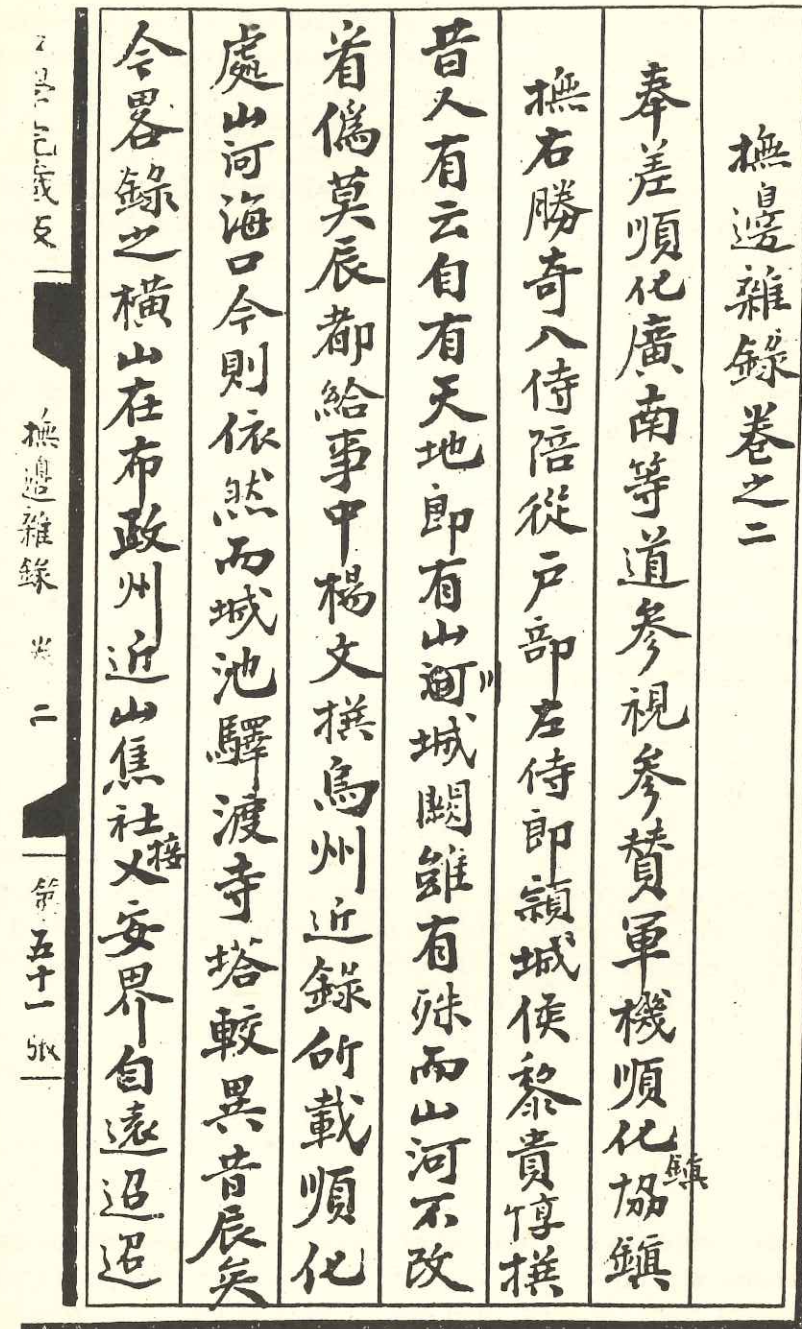 撫邊雜錄卷之二
奉差順化廣南等道參視參賛軍機順化協鎮鎮
撫右勝奇入侍陪從戶部左侍郎頴城侯黎貴惇撰
昔人有云自有天地即有山河城闕雖有殊而山河不改
肴偽莫辰都給事中楊文撰烏州近錄所載順化
處山河海口今則依然而城池驛渡寺塔較異昔辰矣
今畧錄之橫山在布政州近山焦社接乂安界自遠迢迢
撫邊雜錄 二
第五十一張